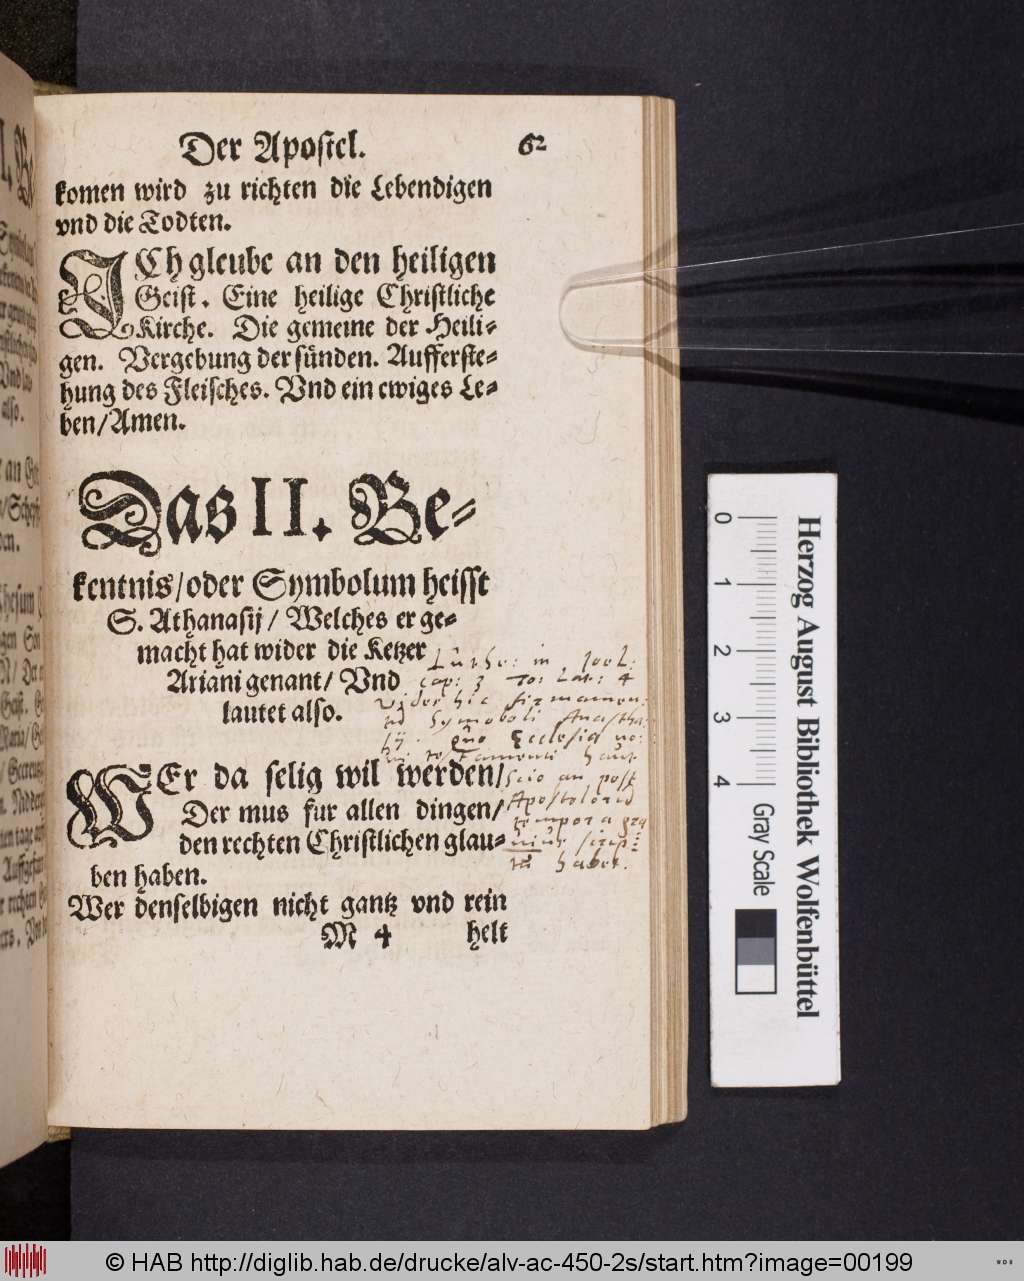 Der Apostel. 62
komen wird zu richten die Lebendigen
vnd die Todten.
ICh gleube an den heiligen
Geist. Eine heilige Christliche
Kirche. Die gemeine der Heili-
gen. Vergebung der sünden. Aufferste-
hung des Fleisches. Vnd ein ewiges Le-
ben/Amen.
Das II. Be-
kentnis/oder Symbolum heisst
S. Athanasij/ Welches er ge-
macht hat wider die Ketzer
Ariani genant/ Vnd
lautet also.
Luthe: in Joel:
cap: 3 To: Lat: 4
Symboli
Ecclesia
scio an post
Apostolorū
tempora
habet.
WEr da selig wil werden/
Der mus fur allen dingen/
den rechten Christlichen glau-
ben haben.
Wer denselbigen nicht gantz vnd rein
M 4 helt
Herzog August Bibliothek Wolfenbüttel
0 1 2 3 4
Gray Scale
© HAB http://diglib.hab.de/drucke/alv-ac-450-2s/start.htm?image=00199